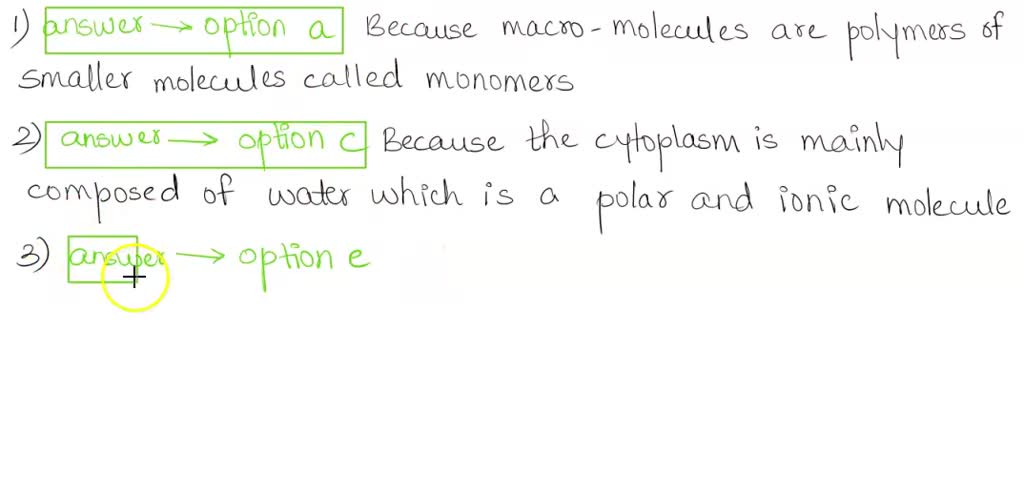 1) answer → option a Because macro-molecules are polymers of
smaller molecules called monomers
2) answer → option c Because the cytoplasm is mainly
composed of water which is a polar and ionic molecule
3) answer → option e